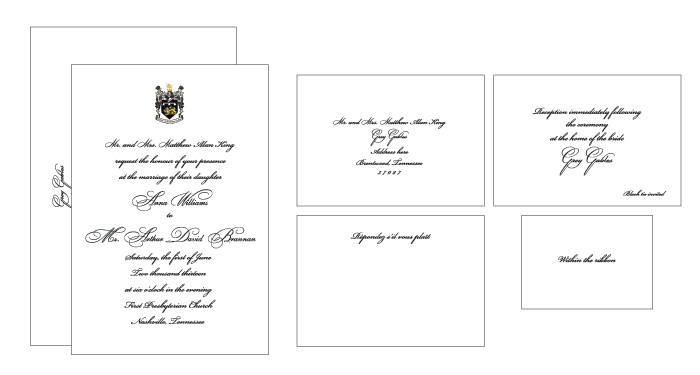 Grey Gables
Mr. and Mrs. Matthew Alan King
request the honour of your presence
at the marriage of their daughter
Anna Williams
to
Mr. Arthur David Brannan
Saturday, the first of June
Two thousand thirteen
at six o'clock in the evening
First Presbyterian Church
Nashville, Tennessee
Mr. and Mrs. Matthew Alan King
Grey Gables
Address here
Brentwood, Tennessee
37027
Reception immediately following
the ceremony
at the home of the bride
Grey Gables
Black tie invited
Répondez s'il vous plaît
Within the ribbon